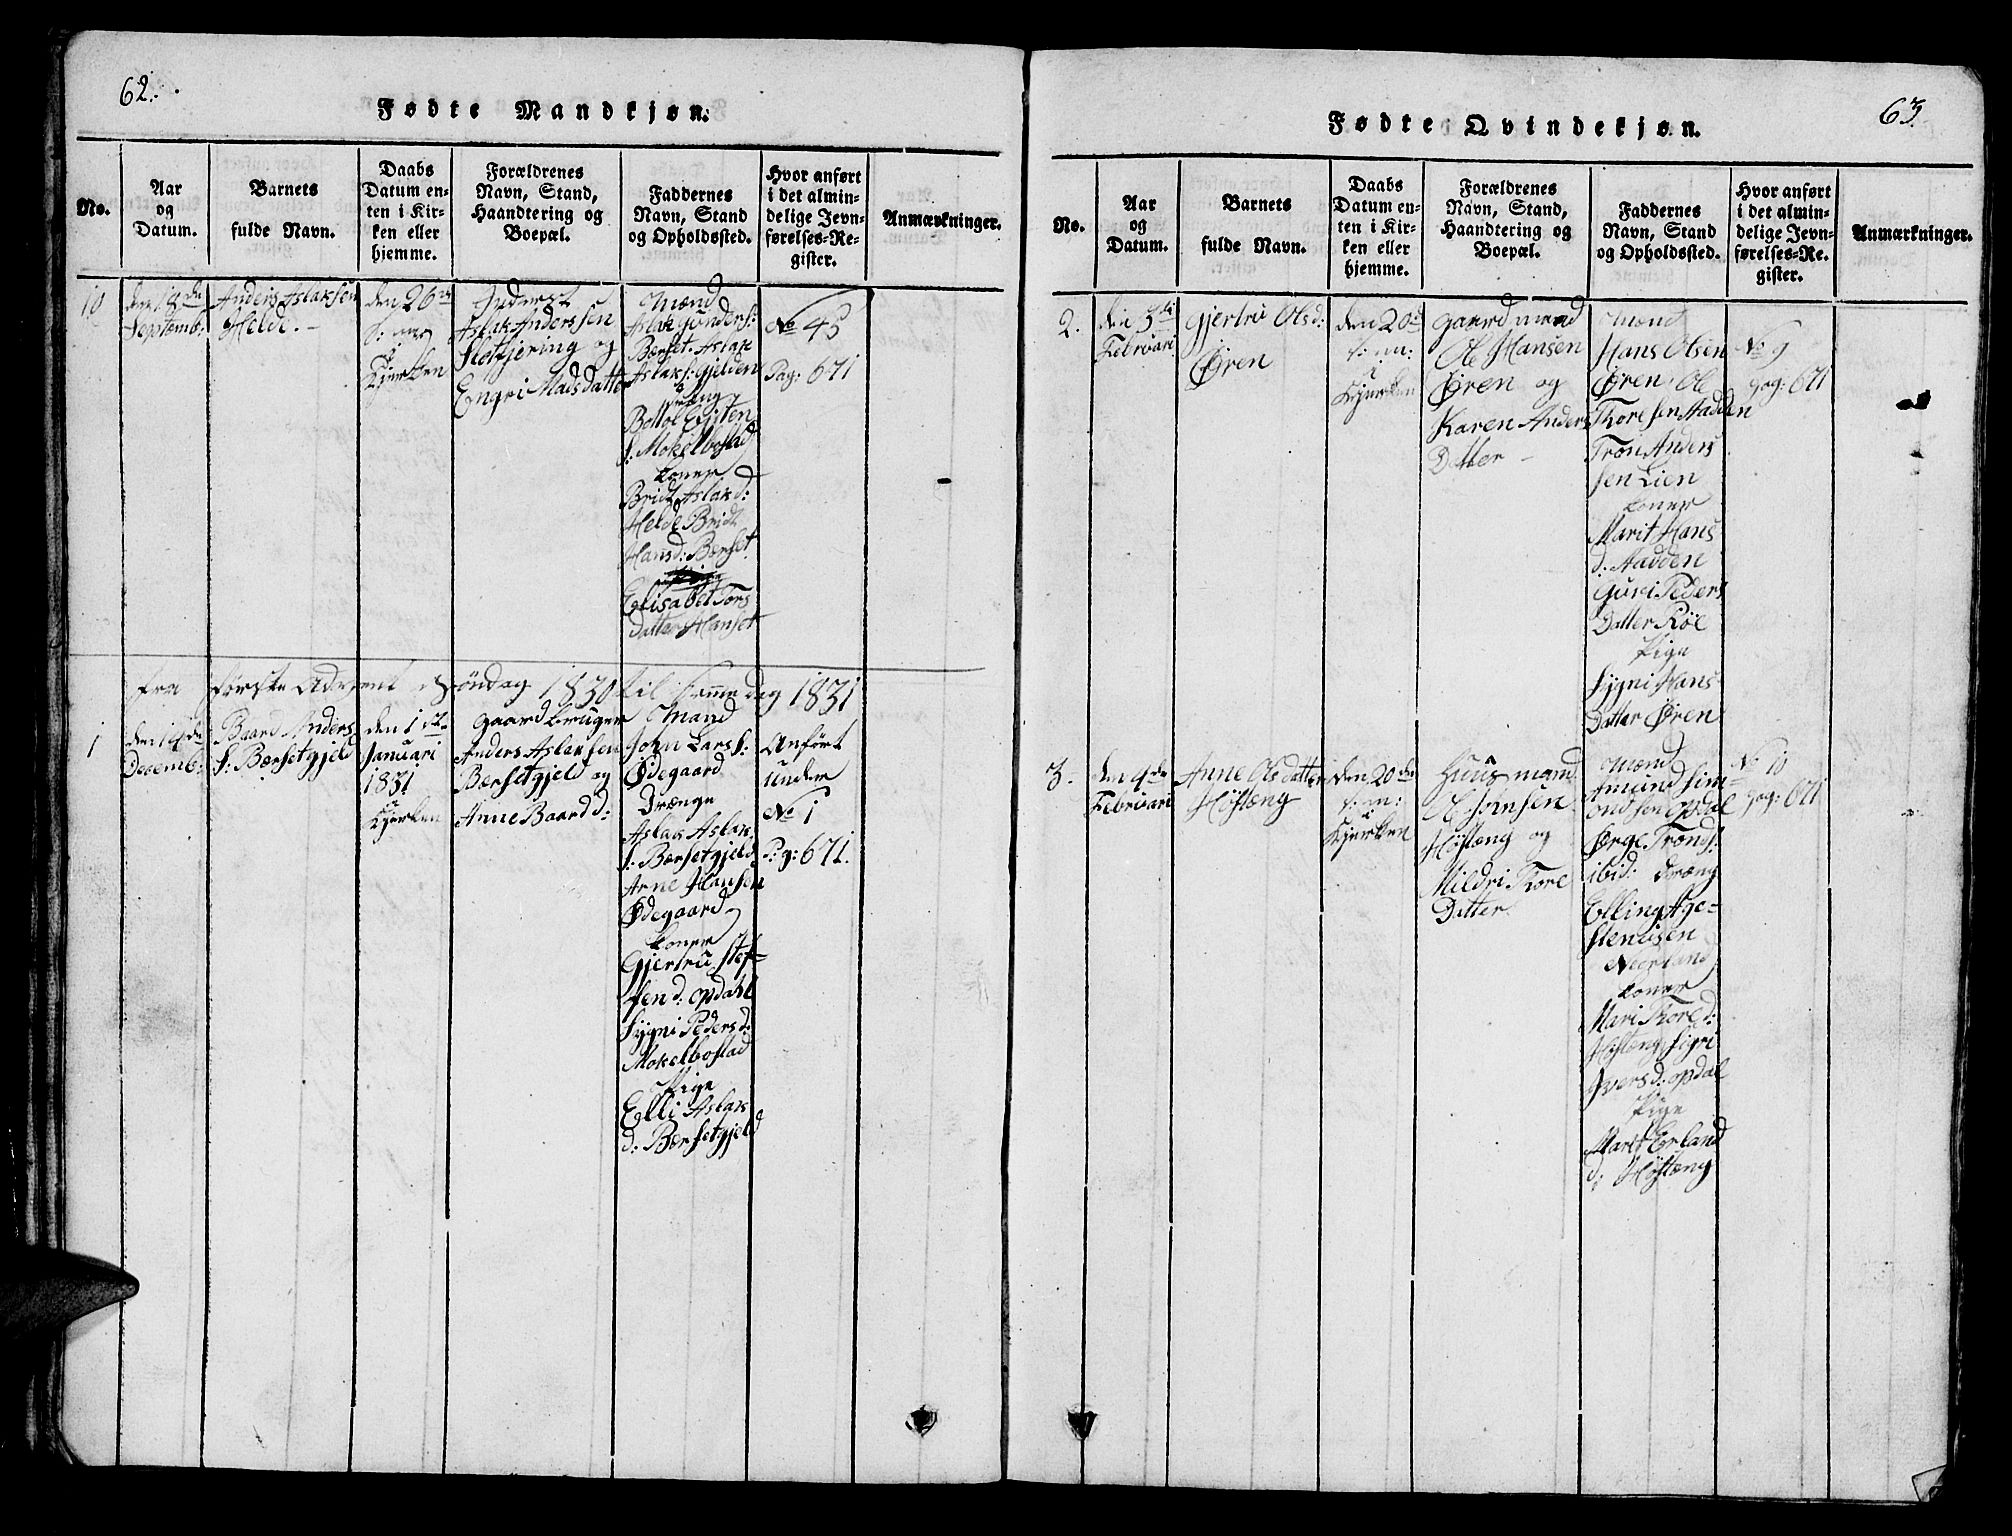 62.
Fødte Mandkjøn.
No.
Aar
og
Datum.
Barnets
fulde Navn.
Daabs
Datum en-
ten i Kir-
ken eller
hjemme.
Forældrenes
Navn, Stand,
Haandtering og
Boepæl.
Faddernes
Navn, Stand
og Opholdssted.
Hvor anført
i det almin-
delige Jevn-
førelses-Re-
gister.
Anmærkninger.
10
den 18de
Septemb:
Anders Aslaksen
Helde.
den 26de
i
Kjerken
Inderst
Aslak Anderssen
og
Engri Madsdatter
Mænd
Aslak Gunders:
Bærset. Aslak
Aslaks: Gjelden
Dræng
Botlol Eysten
s: Mokelbostad
koner
Bridt Aslakd:
Helde Bridt
Hansd: Bærset
Elisabet Tors
datter Hanset
No 45
Pag: 671
Fra første Advent Søndag 1830 til samme dag 1831
1
den 14de
Decemb:
Baard Anders
s: Bærsetgjeld
den 1te
Januari
1831
i
Kjerken
Gaardbruger
Anders Aslaksen
Bærsetgjeld og
Anne Baardd:
Mænd
John Larss:
Ødegaard
Drænge
Aslak Aslak
s: Bærsetgjeld
Arne Hansen
Ødegaard
koner
Gjertru Stef-
fend: Opdahl
Sygni Pedersd:
Mokelbostad
Pige
Elli Aslak
d: Bærsetgjeld
Anført
under
No 1
Pag: 671.
63.
Fødte Qvindekjøn.
No.
Aar
og
Datum.
Barnets
fulde Navn.
Daabs
Datum en-
ten i Kir-
ken eller
hjemme.
Forældrenes
Navn, Stand,
Haandtering og
Boepæl.
Faddernes
Navn, Stand
og Opholdssted.
Hvor anført
i det almin-
delige Jevn-
førelses-Re-
gister.
Anmærkninger.
2.
den 3de
Februari
Gjertru Olsd:
Øren
den 20de
i
Kjerken
Gaardmand
Ole Hansen
Øren og
Karen Anders
Datter
Mænd
Hans Olsen
Øren, Ole
Thoresen Hadden
Tron Anders
sen Lien
koner
Marit Hans
d: Hadden
Guri Peders
Datter Røe
Pige
Sygni Hans
Datter Øren
No 9
pag: 671
3.
den 9de
Februari
Anne Olsdatter
Høstæng
den 20de
i
Kjerken
Huusmand
Ole Johnsen
Høstæng og
Mildri Thore
Datter.
Mænd
Amund Sim-
ondsen Opdal
Ørge Tronds:
ibid: Dræng
Elling Age-
stensen
Neerland
koner
Mari Thored:
Høstæng Sigri
Iversd: Opdal
Pige
Marit Erland
d: Høstæng
No 10
pag: 671